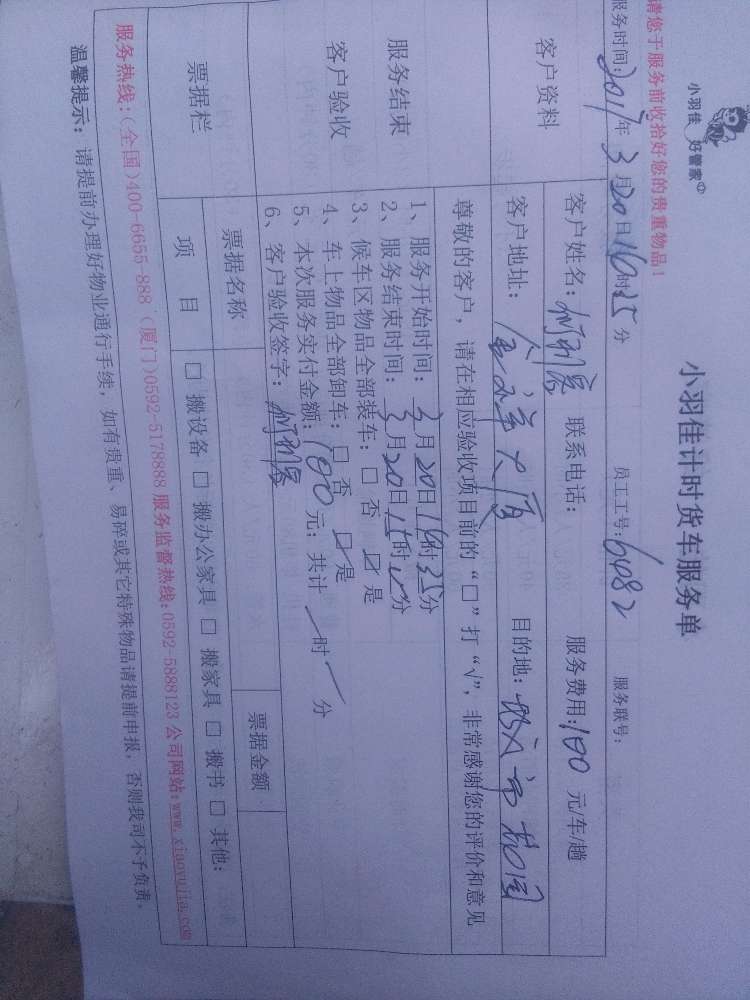 小羽佳 好管家
小羽佳计时货车服务单
请您于服务前收拾好您的贵重物品！
服务时间：2015年3月20日16时35分 员工工号：6482 服务联号：
客户资料
客户姓名： 联系电话： 服务费用：100元/车/趟
客户地址：金祥大厦 目的地：
服务结束
客户验收
尊敬的客户，请在相应验收项目前的“□”打“√”，非常感谢您的评价和意见
1、服务开始时间：3月20日16时35分
2、服务结束时间：3月20日 时 分
3、候车区物品全部装车：□ 否 ☑ 是
4、车上物品全部卸车：□ 否 ☑ 是
5、本次服务实付金额：100元；共计 时 分
6、客户验收签字：
票据栏
票据名称 票据金额
项 目 □ 搬设备 □ 搬办公家具 □ 搬家具 □ 搬书 □ 其他：
服务热线：(全国)400-6655-888 (厦门)0592-5178888 服务监督热线：0592-5888123 公司网站：www.xiaoyujia.com
温馨提示：请提前办理好物业通行手续，如有贵重、易碎或其它特殊物品请提前申报，否则我司不予负责。